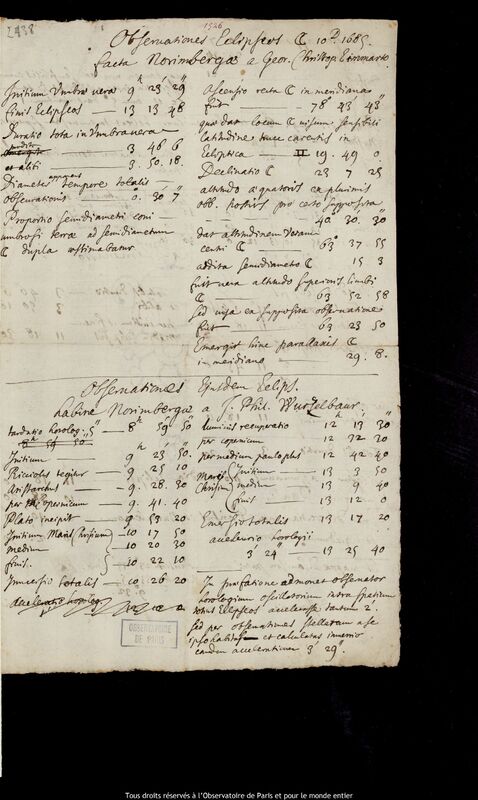 2438
1526
Observationes Eclipseos ☾ 10 D. 1685.
facta Norimbergæ a Geor. Christoph Eimmarto
Initium Umbræ veræ 9h 23' 29"
finis Eclipseos — 13 13 48
Duratio tota in Umbra vera
3 46 6
et aliti 3. 50. 18.
Diameter apparens tempore totalis
observationis — 0. 30' 7"
Proportio semidiametri coni
umbrosi terræ ad semidiametrum
☾ dupla æstimabatur
Ascensio recta ☾ in meridiano
fuit — 78° 43' 43"
quæ dat locum ☾ visum sensibili
latitudine tunc carentis in
Ecliptica — ♊ 19. 49 0
Declinatio ☾ 23 7 25
altitudo æquatoris ex plurimis
obs. prioribus pro certo supposita
40. 30. 30"
dat altitudinem veram
centri ☾ — 63° 37 55
addita semidiametro ☾ 15 3
fuit vera altitudo superioris limbi
☾ — 63 52 58
sed visa ex supposita observatione
fuit 63 23 50
Emergit hinc parallaxis ☾
in meridiano 29. 8.
Observationes Ejusdem Eclips.
habitæ Norimbergæ a J. Phil. Wurtzelbaur.
tarditatio horolog. — 8h 59' 50"
Initium — 9 23 50.
Ricciolus tegitur — 9 25 10
Aristarchus — 9. 28. 30
per Copernicum — 9. 41. 40
Plato incepit — 9 53 20
Initium Maris Chrisium — 10 17 50
medium — 10 20 30
finis. — 10 22 10
Immersio totalis — 10 26 20
acceleratio horolog.
luminis recuperatio 12 13' 30"
per copernicum 12 32 20
per medium paulo plus 12 42 40
Maris Chrisium Initium — 13 3 50
medium — 13 9 40
finis — 13 12 0
Emersio totalis 13 17 20
acceleratio horologii
3' 24" — 13 25 40
In præfatione admonet observator
horologium oscillatorium intra spatium
totius Eclipseos accelerasse tantum 2'.
sed per observationes stellarum a se
ipso habitas et calculatas invenio
eandem accelerationem 3' 29".
OBSERVATOIRE
DE PARIS
Tous droits réservés à l'Observatoire de Paris et pour le monde entier